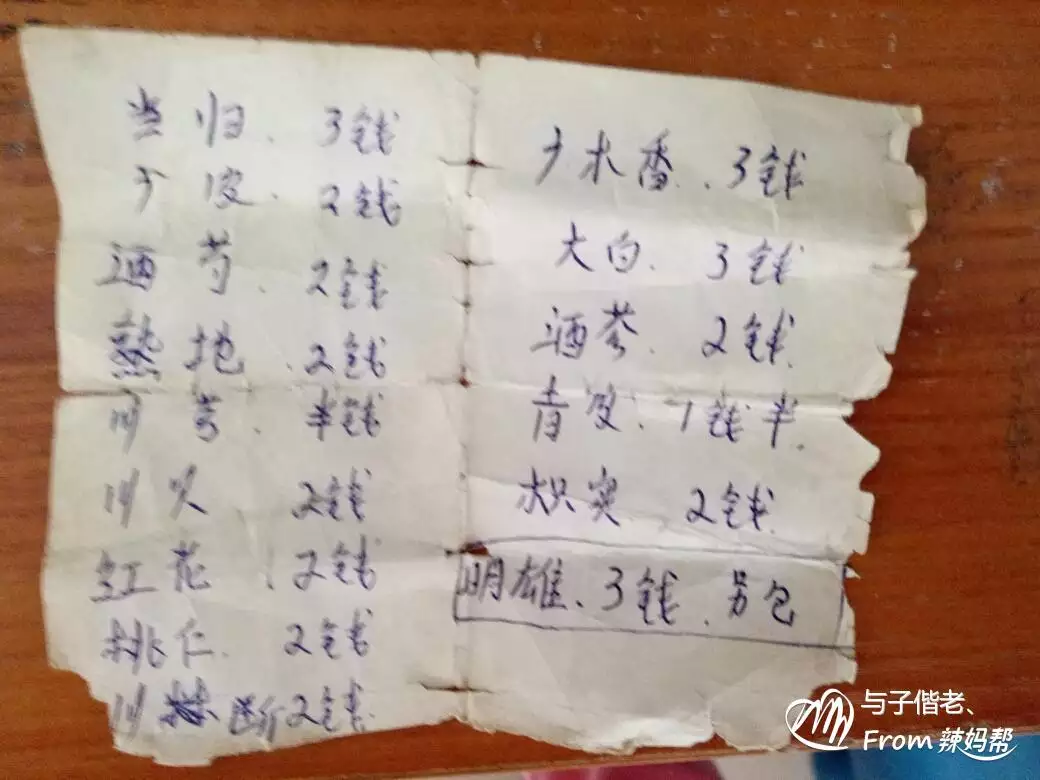 当归. 3钱
广皮. 2钱
酒芍. 2钱
熟地. 2钱
川芎. 半钱
川 2钱
红花. 2钱
桃仁. 2钱
川断2钱
广木香. 3钱
大白. 3钱
酒芩. 2钱
青皮. 1钱半.
枳实. 2钱
明雄、3钱. 另包
与子偕老、
From 辣妈帮